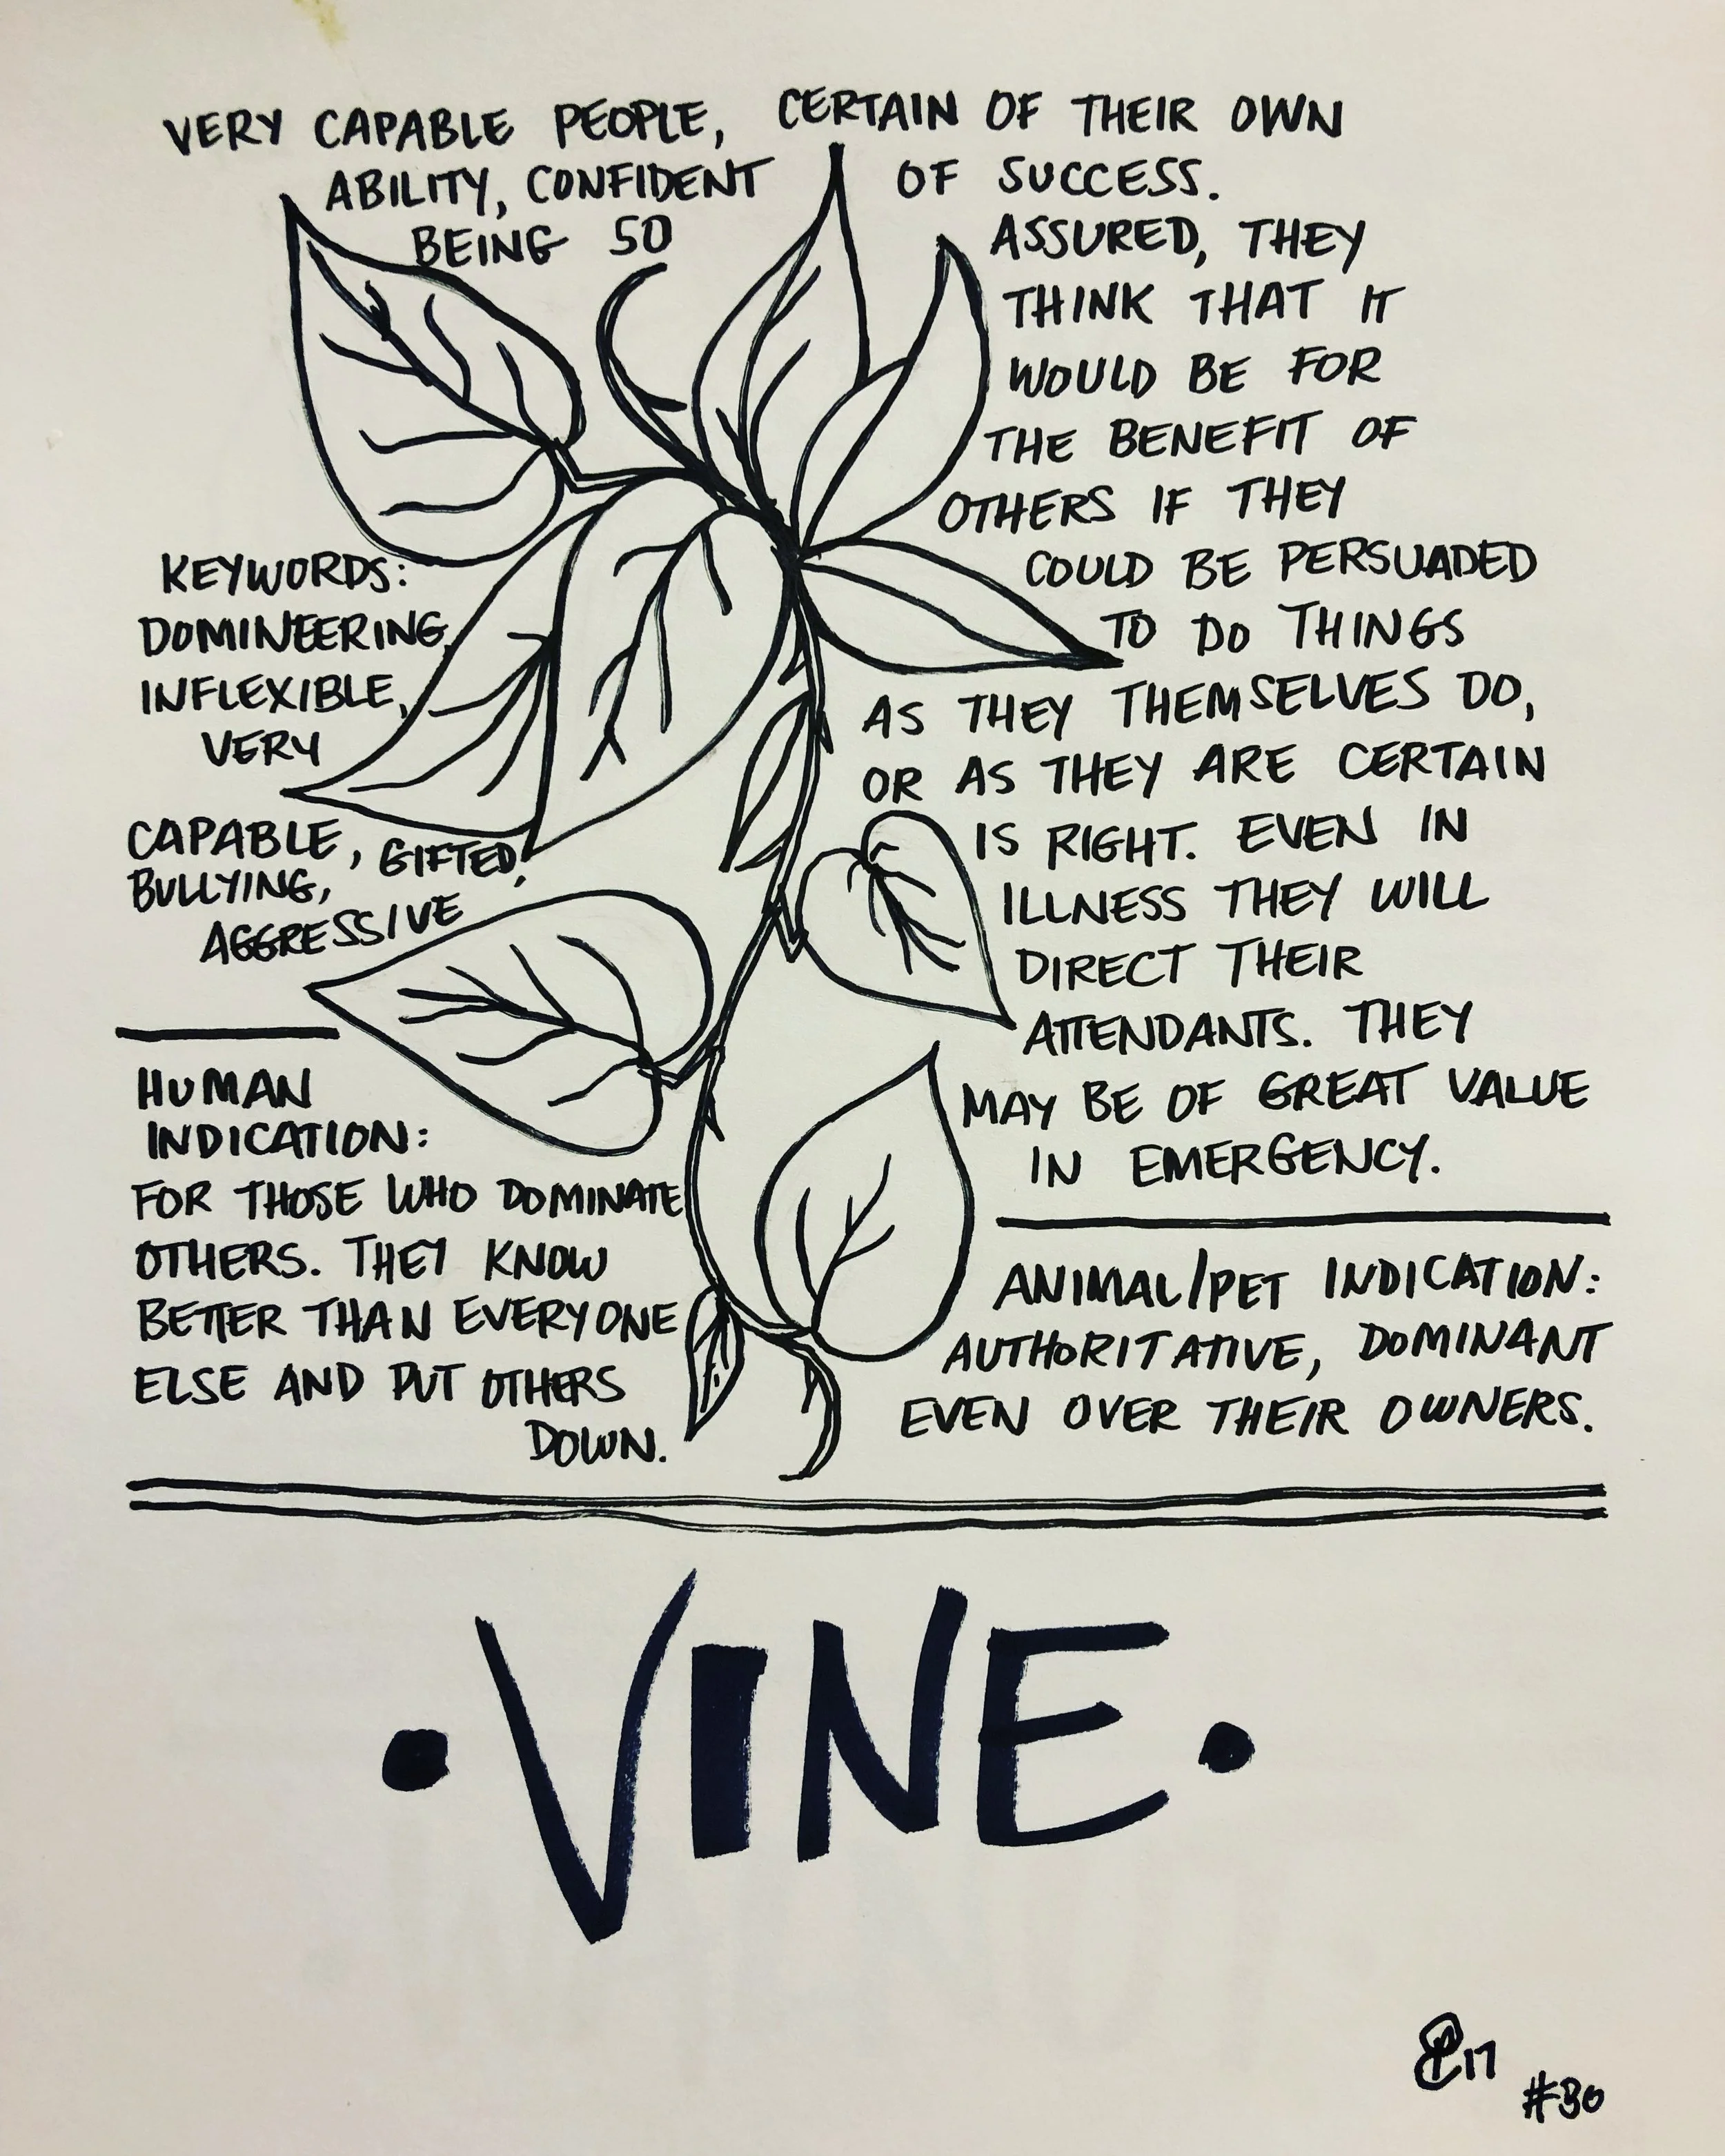 VERY CAPABLE PEOPLE, CERTAIN OF THEIR OWN
ABILITY, CONFIDENT OF SUCCESS.
BEING SO ASSURED, THEY
THINK THAT IT
WOULD BE FOR
THE BENEFIT OF
OTHERS IF THEY
COULD BE PERSUADED
TO DO THINGS
AS THEY THEMSELVES DO,
OR AS THEY ARE CERTAIN
IS RIGHT. EVEN IN
ILLNESS THEY WILL
DIRECT THEIR
ATTENDANTS. THEY
MAY BE OF GREAT VALUE
IN EMERGENCY.
KEYWORDS:
DOMINEERING,
INFLEXIBLE,
VERY
CAPABLE, GIFTED,
BULLYING,
AGGRESSIVE
HUMAN
INDICATION:
FOR THOSE WHO DOMINATE
OTHERS. THEY KNOW
BETTER THAN EVERYONE
ELSE AND PUT OTHERS
DOWN.
ANIMAL/PET INDICATION:
AUTHORITATIVE, DOMINANT
EVEN OVER THEIR OWNERS.
• VINE •
17
#30